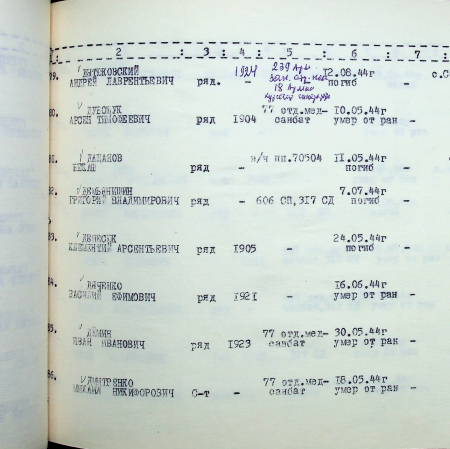 2 : 3 : 4 : 5 : 6 : 7 :
79. ДЫТЫКОВСКИЙ 1924 239 12.08.44г с.С
АНДРЕЙ ЛАВРЕНТЬЕВИЧ ряд. - 18 погиб -
80. ДУБОЛУК 77 отд.мед- 10.05.44г
АРСЕН ТИМОФЕЕВИЧ ряд 1904 санбат умер от ран -
81. ДАЦАНОВ в/ч пп.70504 11.05.44г
ряд - погиб -
82. ДЕМЬЯНИШИН 7.07.44г
ГРИГОРИЙ ВЛАДИМИРОВИЧ ряд - 606 СП,317 СД погиб -
83. ДЕНЕСЮК 24.05.44г
КЛЕМЕНТИЙ АРСЕНТЬЕВИЧ ряд 1905 - погиб
84. ДЯЧЕНКО 16.06.44г
ВАСИЛИЙ ЕФИМОВИЧ ряд 1921 - умер от ран -
85. ДЕМИН 77 отд.мед- 30.05.44г
ИВАН ИВАНОВИЧ ряд 1923 санбат умер от ран -
86. ДМИТРЕНКО 77 отд.мед- 18.05.44г
МИХАИЛ НИКИФОРОВИЧ С-т - санбат умер от ран -